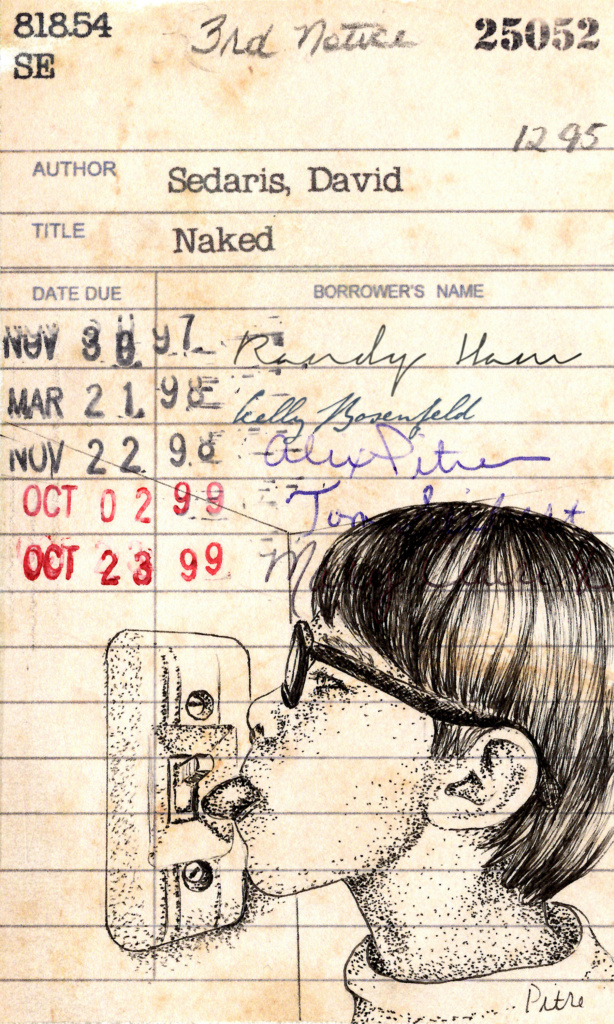 818.54 3rd Notice 25052
SE
12 95
AUTHOR Sedaris, David
TITLE Naked
DATE DUE BORROWER'S NAME
NOV 30 97 Randy Ham
MAR 21 98 Kelly Bosenfeld
NOV 22 98 Alex Petre
OCT 02 99 Tom
OCT 23 99
Petre